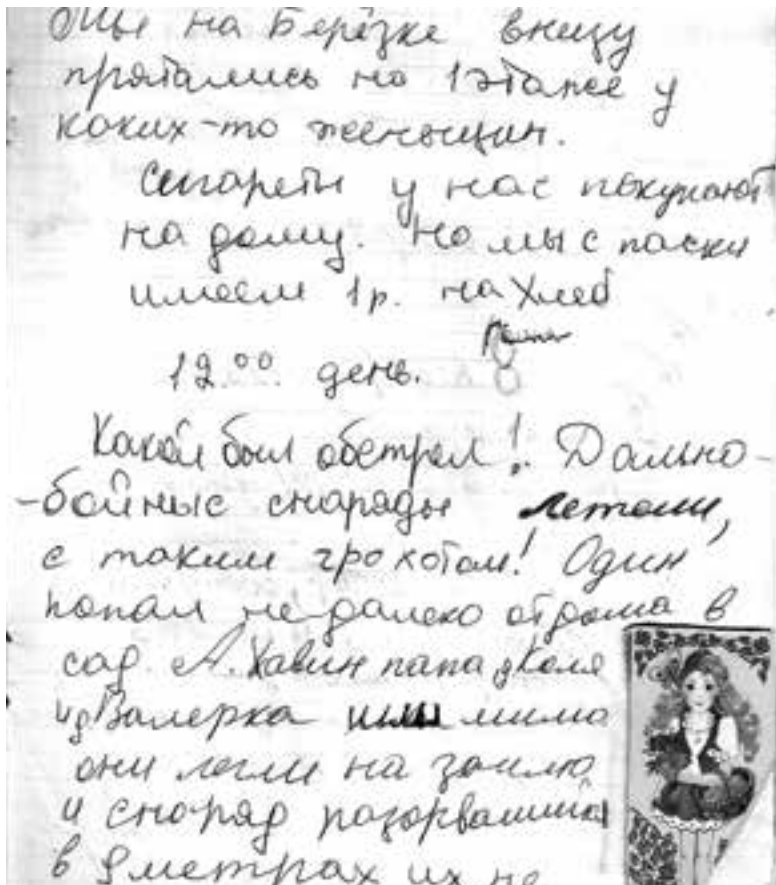 Мы на Берёзке внизу
прятались на 1 этаже у
каких-то женьщин.
Сигареты у нас покупают
на дому. Но мы с паски
имеем 1р. на хлеб
12.00 день.
Какой был обстрел! Дально-
-бойные снаряды летали,
с таким грохотом! Один
попал не далеко от дома в
сад. А. Хавин папа, д Коля
и д Валерка шли мимо
они легли на землю
и снаряд разорвавшийся
в 8 метрах их не